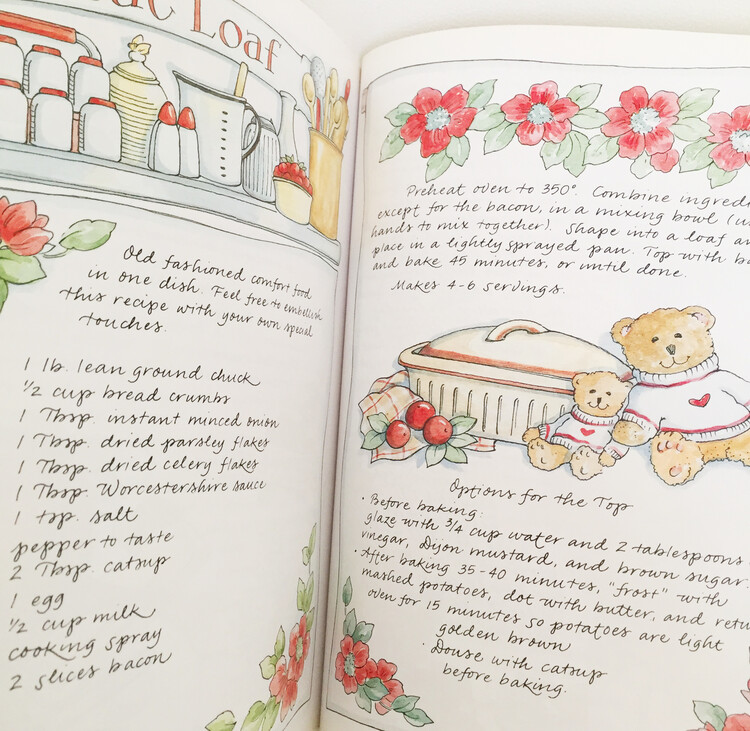 Loaf
Old fashioned comfort food
in one dish. Feel free to embellish
this recipe with your own special
touches.
1 lb. lean ground chuck
1/2 cup bread crumbs
1 Tbsp. instant minced onion
1 Tbsp. dried parsley flakes
1 Tbsp. dried celery flakes
1 Tbsp. Worcestershire sauce
1 tsp. salt
pepper to taste
2 Tbsp. catsup
1 egg
1/2 cup milk
cooking spray
2 slices bacon
Preheat oven to 350°. Combine
except for the bacon, in a mixing bowl
hands to mix together). Shape into a loaf
place in a lightly sprayed pan. Top with
and bake 45 minutes, or until done.
Makes 4-6 servings.
Options for the Top
· Before baking:
glaze with 3/4 cup water and 2 tablespoons
vinegar, Dijon mustard, and brown sugar.
· After baking 35-40 minutes, "frost" with
mashed potatoes, dot with butter, and
oven for 15 minutes so potatoes are light
golden brown
· Douse with catsup
before baking.